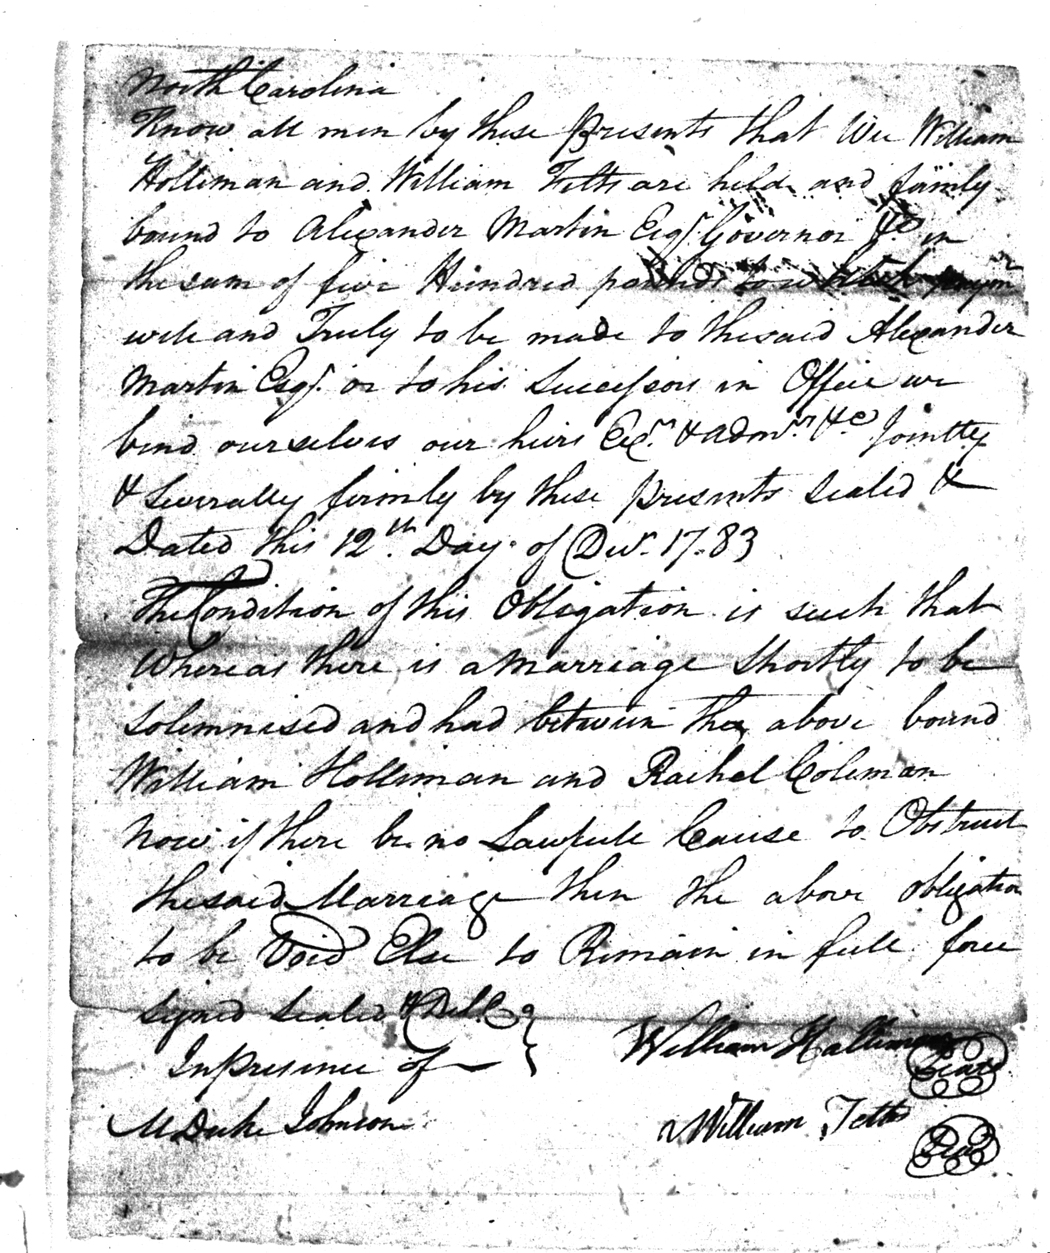 North Carolina
Know all men by these Presents that Wee William
Holliman and William Felts are held and firmly
bound to Alexander Martin Esqr. Governor &c in
the sum of five Hundred pounds to which paym
well and Truly to be made to the said Alexander
Martin Esqr. or to his Successors in Office we
bind ourselves our heirs Exrs. & admrs. &c Jointly
& Severally firmly by these presents Sealed &
Dated this 12th. Day of Decr. 1783
The Condition of this Obligation is such that
Whereas there is a Marriage Shortly to be
Solemnised and had between the above bound
William Holliman and Rachel Coleman
Now if there be no Lawfull Cause to Obstruct
the said Marriage then the above obligation
to be Void Else to Remain in full force
Signed Sealed & Delld
In presence of
William Holliman Seal
M Duke Johnson
William Felts Seal